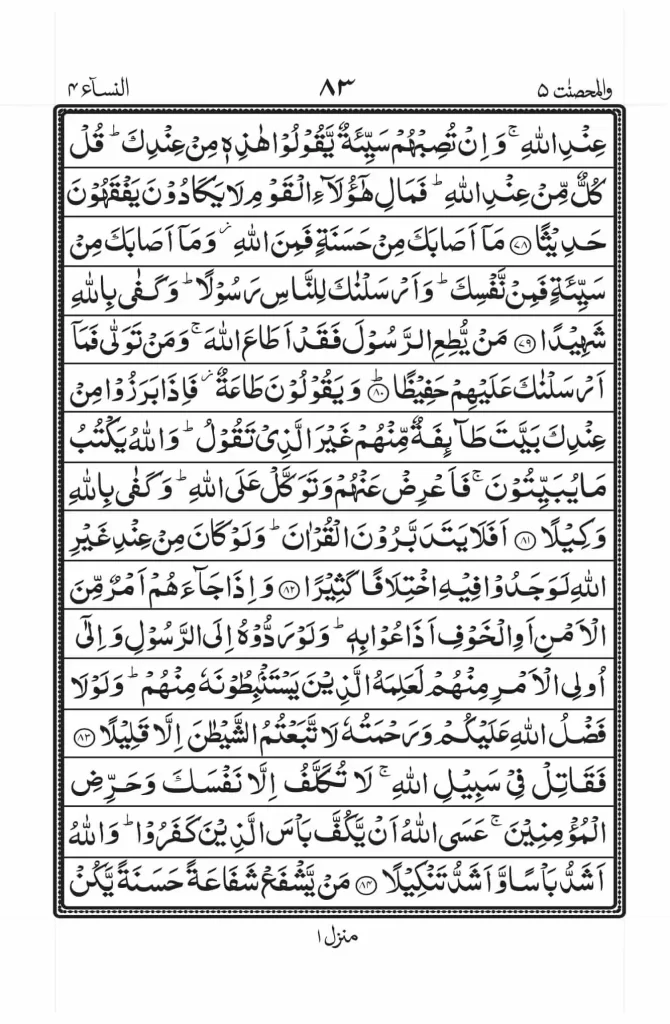 والمحصنٰت ۵ ۸۳ النسآء ۴
عِنْدِ اللّٰهِ ۚ وَ اِنْ تُصِبْهُمْ سَيِّئَةٌ يَّقُوْلُوْا هٰذِهٖ مِنْ عِنْدِكَ ؕ قُلْ
كُلٌّ مِّنْ عِنْدِ اللّٰهِ ؕ فَمَالِ هٰٓؤُلَآءِ الْقَوْمِ لَا يَكَادُوْنَ يَفْقَهُوْنَ
حَدِيْثًا ﴿۷۸﴾ مَاۤ اَصَابَكَ مِنْ حَسَنَةٍ فَمِنَ اللّٰهِ ؗ وَ مَاۤ اَصَابَكَ مِنْ
سَيِّئَةٍ فَمِنْ نَّفْسِكَ ؕ وَ اَرْسَلْنٰكَ لِلنَّاسِ رَسُوْلًا ؕ وَ كَفٰى بِاللّٰهِ
شَهِيْدًا ﴿۷۹﴾ مَنْ يُّطِعِ الرَّسُوْلَ فَقَدْ اَطَاعَ اللّٰهَ ۚ وَ مَنْ تَوَلّٰى فَمَاۤ
اَرْسَلْنٰكَ عَلَيْهِمْ حَفِيْظًا ﴿ؕ۸۰﴾ وَ يَقُوْلُوْنَ طَاعَةٌ ؗ فَاِذَا بَرَزُوْا مِنْ
عِنْدِكَ بَيَّتَ طَآىِٕفَةٌ مِّنْهُمْ غَيْرَ الَّذِيْ تَقُوْلُ ؕ وَ اللّٰهُ يَكْتُبُ
مَا يُبَيِّتُوْنَ ۚ فَاَعْرِضْ عَنْهُمْ وَ تَوَكَّلْ عَلَى اللّٰهِ ؕ وَ كَفٰى بِاللّٰهِ
وَكِيْلًا ﴿۸۱﴾ اَفَلَا يَتَدَبَّرُوْنَ الْقُرْاٰنَ ؕ وَ لَوْ كَانَ مِنْ عِنْدِ غَيْرِ
اللّٰهِ لَوَجَدُوْا فِيْهِ اخْتِلَافًا كَثِيْرًا ﴿۸۲﴾ وَ اِذَا جَآءَهُمْ اَمْرٌ مِّنَ
الْاَمْنِ اَوِ الْخَوْفِ اَذَاعُوْا بِهٖ ؕ وَ لَوْ رَدُّوْهُ اِلَى الرَّسُوْلِ وَ اِلٰۤى
اُولِي الْاَمْرِ مِنْهُمْ لَعَلِمَهُ الَّذِيْنَ يَسْتَنْۢبِطُوْنَهٗ مِنْهُمْ ؕ وَ لَوْ لَا
فَضْلُ اللّٰهِ عَلَيْكُمْ وَ رَحْمَتُهٗ لَاتَّبَعْتُمُ الشَّيْطٰنَ اِلَّا قَلِيْلًا ﴿۸۳﴾
فَقَاتِلْ فِيْ سَبِيْلِ اللّٰهِ ۚ لَا تُكَلَّفُ اِلَّا نَفْسَكَ وَ حَرِّضِ
الْمُؤْمِنِيْنَ ۚ عَسَى اللّٰهُ اَنْ يَّكُفَّ بَاْسَ الَّذِيْنَ كَفَرُوْا ؕ وَ اللّٰهُ
اَشَدُّ بَاْسًا وَّ اَشَدُّ تَنْكِيْلًا ﴿۸۴﴾ مَنْ يَّشْفَعْ شَفَاعَةً حَسَنَةً يَّكُنْ
منزل ۱